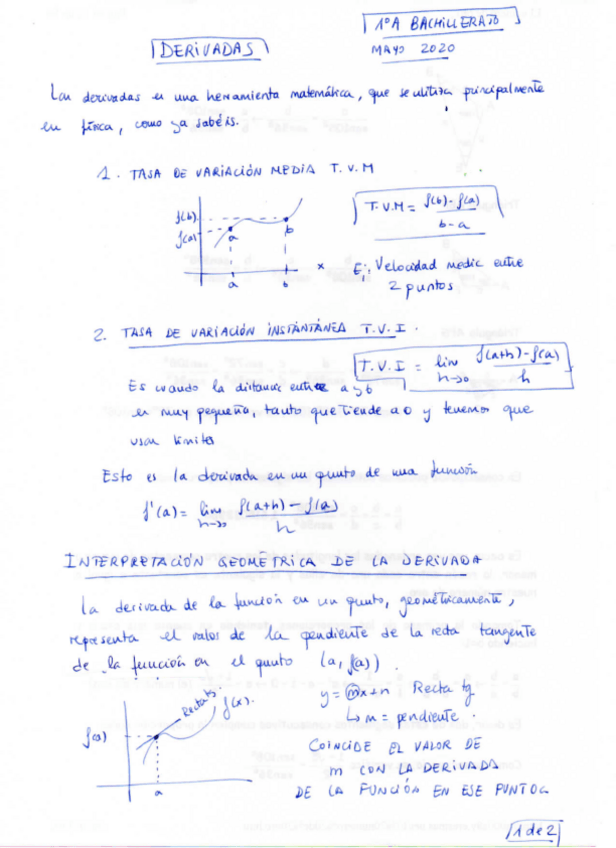 1ºA BACHILLERATO
DERIVADAS
MAYO 2020
Las derivadas es una herramienta matemática, que se utiliza principalmente
en física, como ya sabéis.
1. TASA DE VARIACIÓN MEDIA T.V.M
f(b)
f(a)
a
b
a
b
x
T.V.M = f(b)-f(a) / b-a
Ej: Velocidad media entre
2 puntos
2. TASA DE VARIACIÓN INSTANTÁNEA T.V.I.
T.V.I = lim h->0 f(a+h)-f(a) / h
Es cuando la distancia entre a y b
es muy pequeña, tanto que tiende a 0 y tenemos que
usar límites
Esto es la derivada en un punto de una función
f'(a) = lim h->0 f(a+h)-f(a) / h
INTERPRETACIÓN GEOMÉTRICA DE LA DERIVADA
La derivada de la función en un punto, geométricamente,
representa el valor de la pendiente de la recta tangente
de la función en el punto (a, f(a)).
y = mx+n Recta tg
↳ m = pendiente.
Recta tg
f(x).
f(a)
a
COINCIDE EL VALOR DE
m CON LA DERIVADA
DE LA FUNCIÓN EN ESE PUNTO
1 de 2